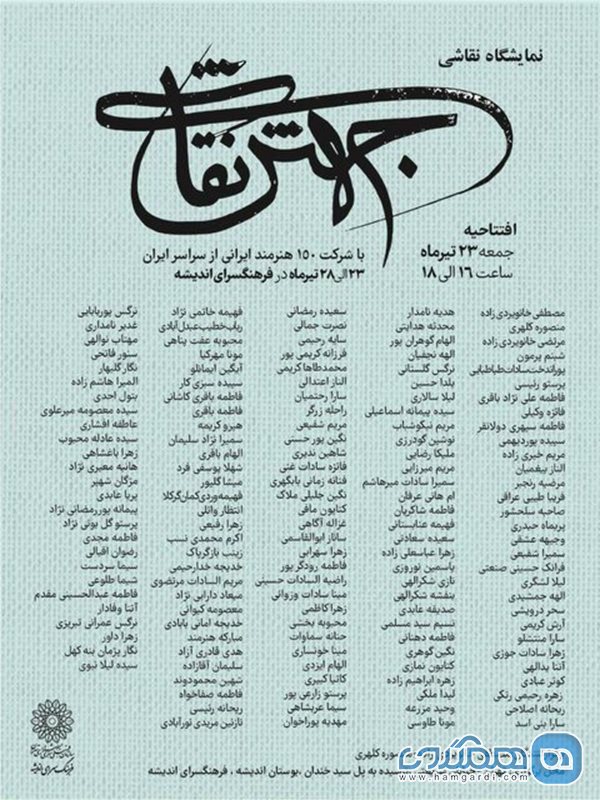 نمایشگاه نقاشی
جهش نقاشی
افتتاحیه
جمعه ۲۳ تیرماه
ساعت ۱۶ الی ۱۸
با شرکت ۱۵۰ هنرمند ایرانی از سراسر ایران
۲۳ الی ۲۸ تیرماه در فرهنگسرای اندیشه
مصطفی خانویردی زاده
منصوره کلهری
مرتضی خانویردی زاده
شبنم پرمون
پوراندخت سادات طباطبایی
پرستو رئیسی
فاطمه علی نژاد باقری
فائزه وکیلی
فاطمه سپهری دولانفر
سپیده پوردیهمی
مریم خیری زاده
الناز بیغمیان
مرضیه رنجبر
فریبا طیبی عراقی
صاحبه سلحشور
پریماه حیدری
وجیهه عشقی
سمیرا شفیعی
فرانک حسینی صنعتی
لیلا لشگری
الهه جمشیدی
سحر درویشی
آرش کریمی
سارا منتشلو
زهرا سادات جوزی
آتنا یدالهی
کوثر عبادی
زهره رحیمی رتکی
ریحانه اصلاحی
سارا بنی اسد
هدیه نامدار
محدثه هدایتی
الهام گوهران پور
الهه نجفیان
نرگس گلستانی
یلدا حسین
لیلا سالاری
سیده پیمانه اسماعیلی
مریم نیکوشباب
نوشین گودرزی
ملیکا رضایی
مریم میرزایی
سمیرا سادات میرهاشم
ام هانی عرفان
فاطمه شاگریان
فهیمه عنابستانی
سعیده سعادتی
زهرا عباسعلی زاده
یاسمین نوروزی
نازی شکرالهی
بنفشه شکرالهی
صدیقه عابدی
نسیم سید مسلمی
فاطمه دهنانی
نگین گوهری
کتایون نمازی
زهره ابراهیم زاده
لیدا ملکی
وحید مزرعه
مونا طاوسی
سعیده رمضانی
نصرت جمالی
سایه رحیمی
فرزانه کریمی پور
محمدطاها کریمی
الناز اعتدالی
سارا رحتمیان
راحله زرگر
مریم شفیعی
نگین پور حسنی
شاهین ندیری
فائزه سادات غنی
فتانه زمانی بابگهری
نگین جلیلی ملاک
کتایون مافی
غزاله آگاهی
ساناز ابوالقاسمی
زهرا سهرابی
فاطمه رودگر پور
راضیه السادات حسینی
مینا سادات وزوانی
زهرا کاظمی
محبوبه بخشی
حنانه سماوات
مینا خونساری
الهام ایزدی
کاتیا کبیری
پرستو زارعی پور
سیما عربشاهی
مهدیه پوراخوان
فهیمه خاتمی نژاد
رباب خطیب عبدل آبادی
محبوبه عفت پناهی
مونا مهرکیا
آیگین ایمانلو
سپیده سبزی کار
فاطمه باقری کاشانی
فاطمه باقری
هیرو کریمه
سمیرا نژاد سلیمان
الهام باقری
شهلا یوسفی فرد
میشا گلپور
فهیمه وردی کمان گرکلا
انتظار وائلی
زهرا رفیعی
اکرم محمدی نسب
زینب بازگریاک
خدیجه خدارحیمی
مریم السادات مرتضوی
میعاد دارابی نژاد
معصومه کیوانی
خدیجه امانی بابادی
مبارکه هنرمند
هدی قادری آزاد
سلیمان آقازاده
شهین محمودوند
فاطمه صفاخواه
ریحانه رئیسی
نازنین مریدی نورآبادی
نرگس پوربابایی
غدیر نامداری
مهتاب نوالهی
ستور فاتحی
نگار گلبهار
المیرا هاشم زاده
بتول احدی
سیده معصومه میرعلوی
عاطفه افشاری
سیده عادله محبوب
زهرا باغشاهی
هانیه معیری نژاد
مژگان شهیر
پریا عابدی
پیمانه پوررمضانی نژاد
پرستو گل بوتی نژاد
فاطمه مجدی
رضوان اقبالی
سیما سردست
شیما طلوعی
فاطمه عبدالحسینی مقدم
آتنا وفادار
نرگس عمرانی تبریزی
زهرا داور
نگار پژمان بنه کهل
سیده لیلا نبوی
منصوره کلهری
نرسیده به پل سید خندان ، بوستان اندیشه ، فرهنگسرای اندیشه
فرهنگسرای اندیشه
همگردی
www.hamgardi.com